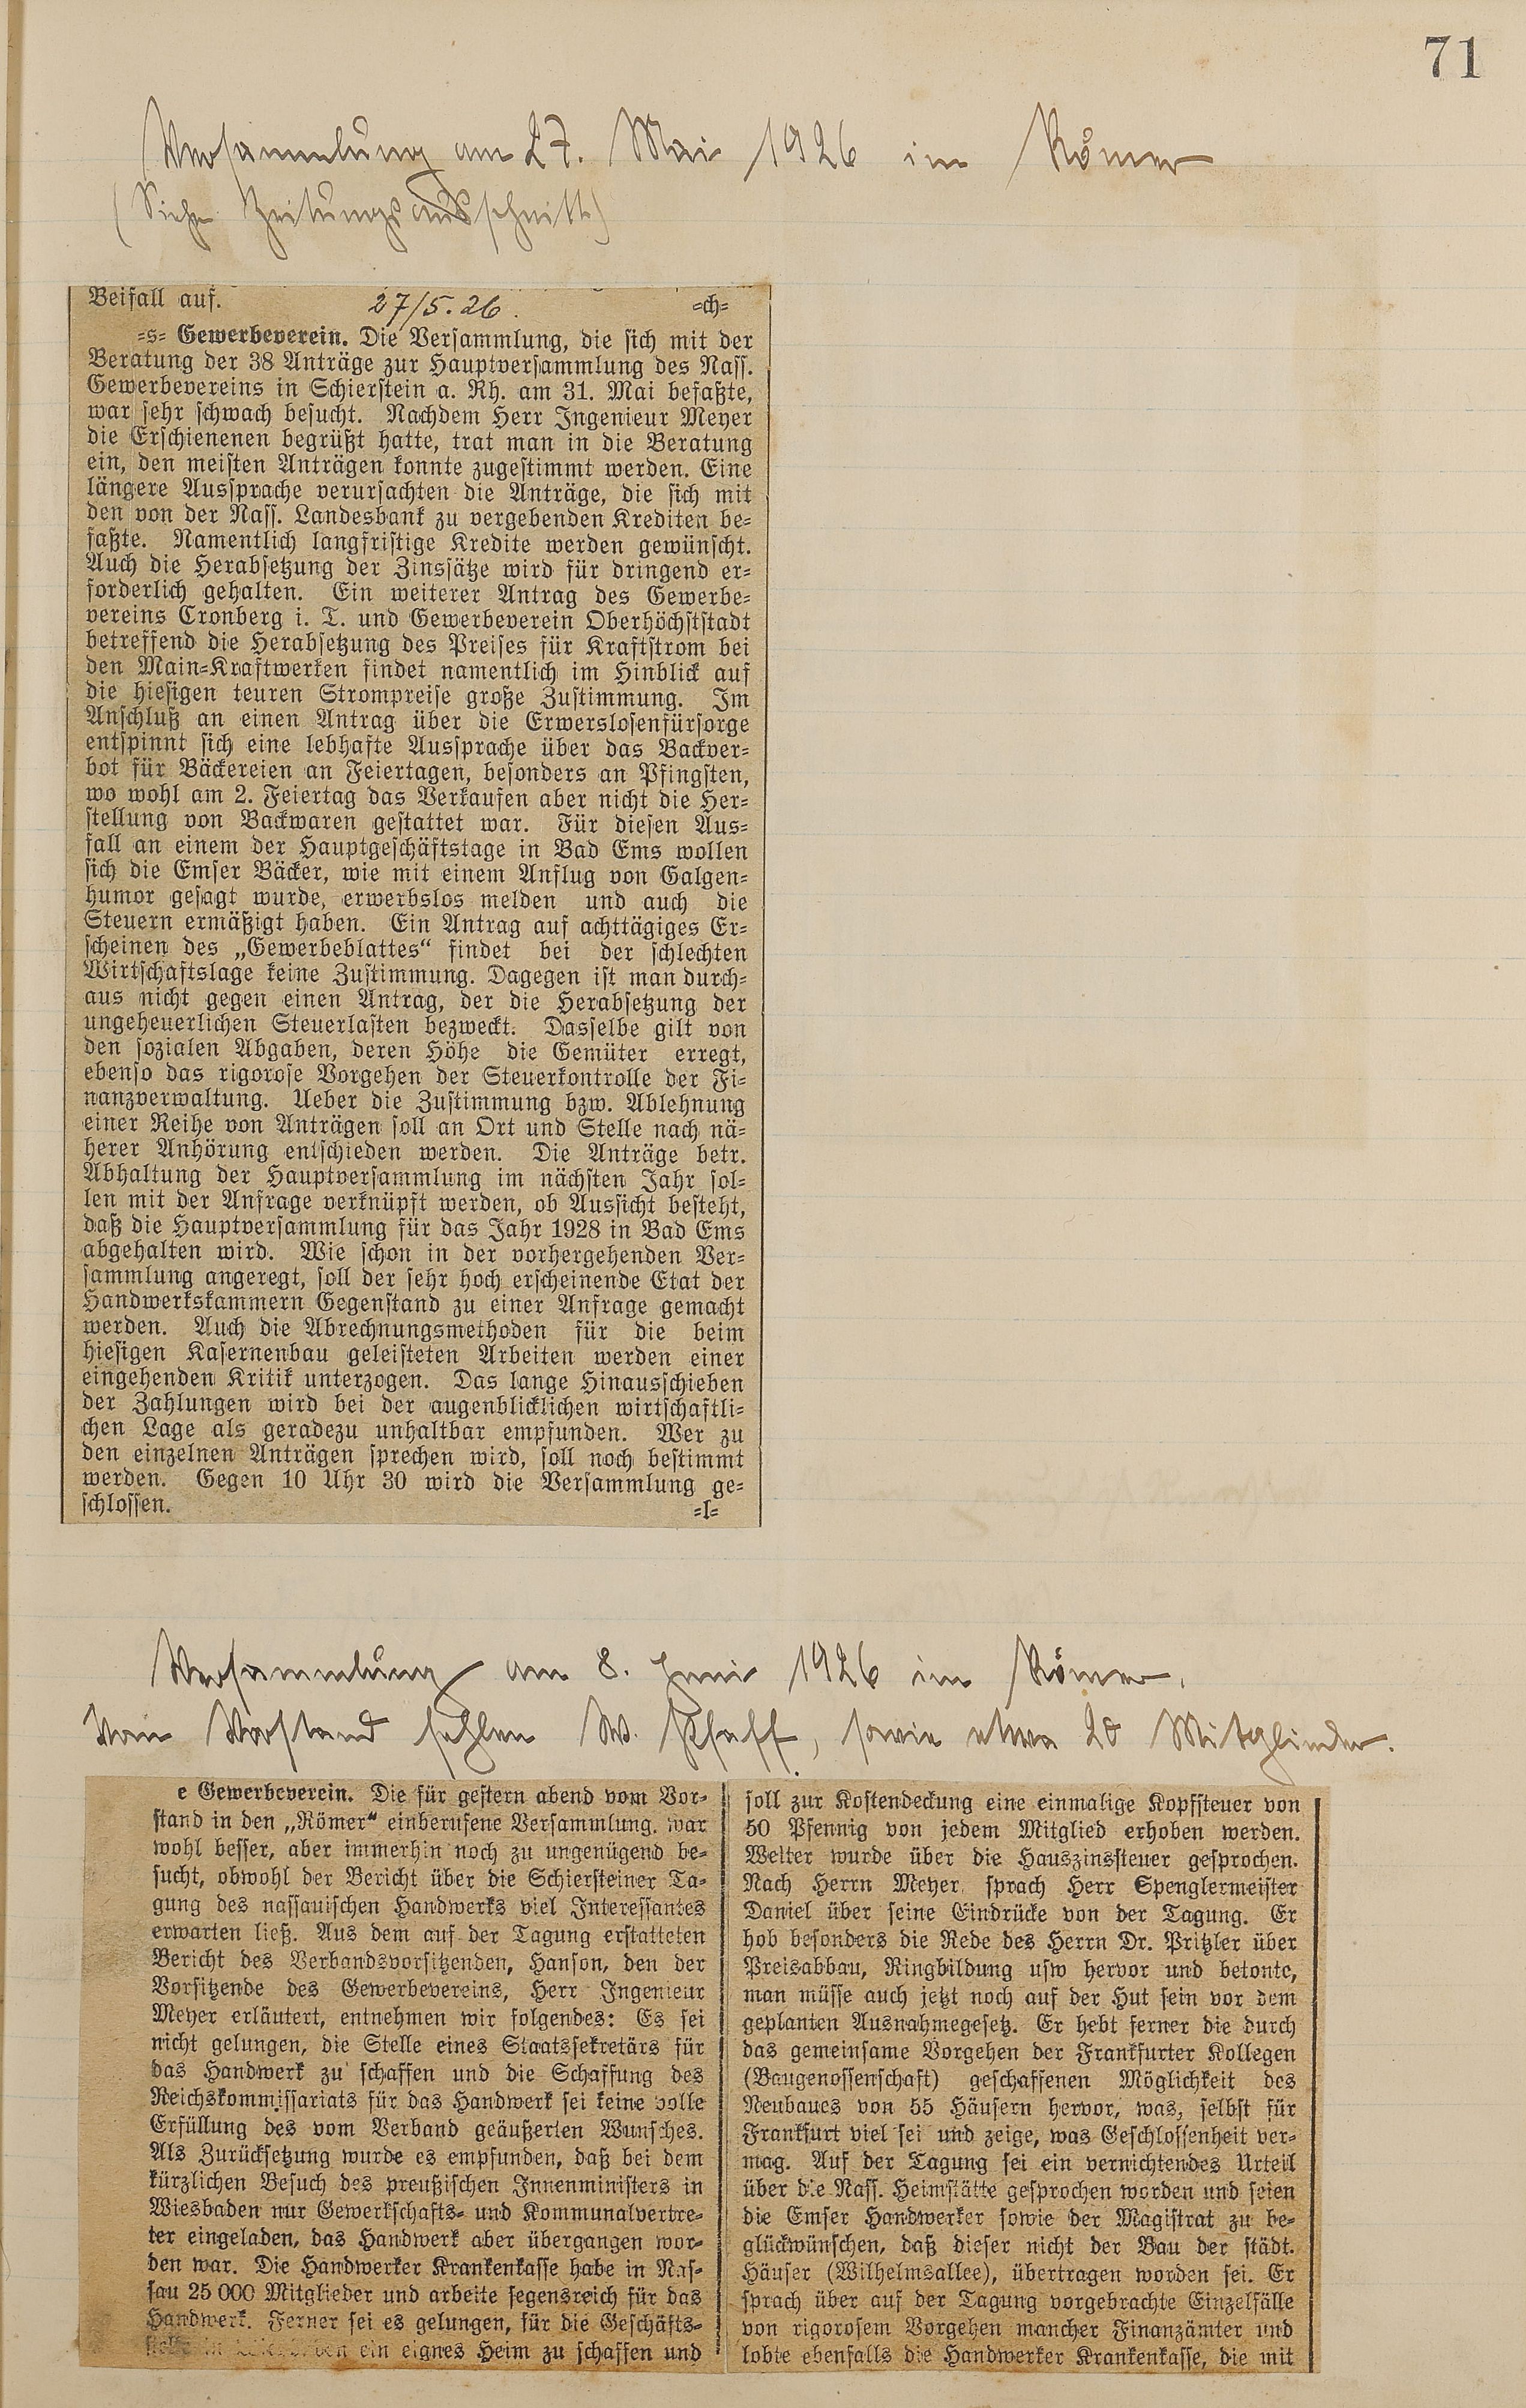 71
Versammlung am 27. Mai 1926 im Römer
(Siehe Zeitungsausschnitt)
Beifall auf. 27/5. 26. =ch=
=s= Gewerbeverein. Die Versammlung, die sich mit der
Beratung der 38 Anträge zur Hauptversammlung des Nass.
Gewerbevereins in Schierstein a. Rh. am 31. Mai befaßte,
war sehr schwach besucht. Nachdem Herr Ingenieur Meyer
die Erschienenen begrüßt hatte, trat man in die Beratung
ein, den meisten Anträgen konnte zugestimmt werden. Eine
längere Aussprache verursachten die Anträge, die sich mit
den von der Nass. Landesbank zu vergebenden Krediten be=
faßte. Namentlich langfristige Kredite werden gewünscht.
Auch die Herabsetzung der Zinssätze wird für dringend er=
forderlich gehalten. Ein weiterer Antrag des Gewerbe=
vereins Cronberg i. T. und Gewerbeverein Oberhöchststadt
betreffend die Herabsetzung des Preises für Kraftstrom bei
den Main=Kraftwerken findet namentlich im Hinblick auf
die hiesigen teuren Strompreise große Zustimmung. Im
Anschluß an einen Antrag über die Erwerslosenfürsorge
entspinnt sich eine lebhafte Aussprache über das Backver=
bot für Bäckereien an Feiertagen, besonders an Pfingsten,
wo wohl am 2. Feiertag das Verkaufen aber nicht die Her=
stellung von Backwaren gestattet war. Für diesen Aus=
fall an einem der Hauptgeschäftstage in Bad Ems wollen
sich die Emser Bäcker, wie mit einem Anflug von Galgen=
humor gesagt wurde, erwerbslos melden und auch die
Steuern ermäßigt haben. Ein Antrag auf achttägiges Er=
scheinen des „Gewerbeblattes“ findet bei der schlechten
Wirtschaftslage keine Zustimmung. Dagegen ist man durch=
aus nicht gegen einen Antrag, der die Herabsetzung der
ungeheuerlichen Steuerlasten bezweckt. Dasselbe gilt von
den sozialen Abgaben, deren Höhe die Gemüter erregt,
ebenso das rigorose Vorgehen der Steuerkontrolle der Fi=
nanzverwaltung. Ueber die Zustimmung bzw. Ablehnung
einer Reihe von Anträgen soll an Ort und Stelle nach nä=
herer Anhörung entschieden werden. Die Anträge betr.
Abhaltung der Hauptversammlung im nächsten Jahr sol=
len mit der Anfrage verknüpft werden, ob Aussicht besteht,
daß die Hauptversammlung für das Jahr 1928 in Bad Ems
abgehalten wird. Wie schon in der vorhergehenden Ver=
sammlung angeregt, soll der sehr hoch erscheinende Etat der
Handwerkskammern Gegenstand zu einer Anfrage gemacht
werden. Auch die Abrechnungsmethoden für die beim
hiesigen Kasernenbau geleisteten Arbeiten werden einer
eingehenden Kritik unterzogen. Das lange Hinausschieben
der Zahlungen wird bei der augenblicklichen wirtschaftli=
chen Lage als geradezu unhaltbar empfunden. Wer zu
den einzelnen Anträgen sprechen wird, soll noch bestimmt
werden. Gegen 10 Uhr 30 wird die Versammlung ge=
schlossen. =l=
Versammlung am 8. Juni 1926 im Römer.
Vom Vorstand fehlen W. Pfaff, sowie etwa 20 Mitglieder.
e Gewerbeverein. Die für gestern abend vom Vor=
stand in den „Römer“ einberufene Versammlung. war
wohl besser, aber immerhin noch zu ungenügend be=
sucht, obwohl der Bericht über die Schiersteiner Ta=
gung des nassauischen Handwerks viel Interessantes
erwarten ließ. Aus dem auf der Tagung erstatteten
Bericht des Verbandsvorsitzenden, Hanson, den der
Vorsitzende des Gewerbevereins, Herr Ingenieur
Meyer erläutert, entnehmen wir folgendes: Es sei
nicht gelungen, die Stelle eines Staatssekretärs für
das Handwerk zu schaffen und die Schaffung des
Reichskommissariats für das Handwerk sei keine volle
Erfüllung des vom Verband geäußerten Wunsches.
Als Zurücksetzung wurde es empfunden, daß bei dem
kürzlichen Besuch des preußischen Innenministers in
Wiesbaden nur Gewerkschafts= und Kommunalvertre=
ter eingeladen, das Handwerk aber übergangen wor=
den war. Die Handwerker Krankenkasse habe in Nas=
sau 25 000 Mitglieder und arbeite segensreich für das
Handwerk. Ferner sei es gelungen, für die Geschäfts=
ein eignes Heim zu schaffen und
soll zur Kostendeckung eine einmalige Kopfsteuer von
50 Pfennig von jedem Mitglied erhoben werden.
Weiter wurde über die Hauszinssteuer gesprochen.
Nach Herrn Meyer sprach Herr Spenglermeister
Daniel über seine Eindrücke von der Tagung. Er
hob besonders die Rede des Herrn Dr. Pritzler über
Preisabbau, Ringbildung usw hervor und betonte,
man müsse auch jetzt noch auf der Hut sein vor dem
geplanten Ausnahmegesetz. Er hebt ferner die durch
das gemeinsame Vorgehen der Frankfurter Kollegen
(Baugenossenschaft) geschaffenen Möglichkeit des
Neubaues von 55 Häusern hervor, was, selbst für
Frankfurt viel sei und zeige, was Geschlossenheit ver=
mag. Auf der Tagung sei ein vernichtendes Urteil
über die Nass. Heimstätte gesprochen worden und seien
die Emser Handwerker sowie der Magistrat zu be=
glückwünschen, daß dieser nicht der Bau der städt.
Häuser (Wilhelmsallee), übertragen worden sei. Er
sprach über auf der Tagung vorgebrachte Einzelfälle
von rigorosem Vorgehen mancher Finanzämter und
lobte ebenfalls die Handwerker Krankenkasse, die mit